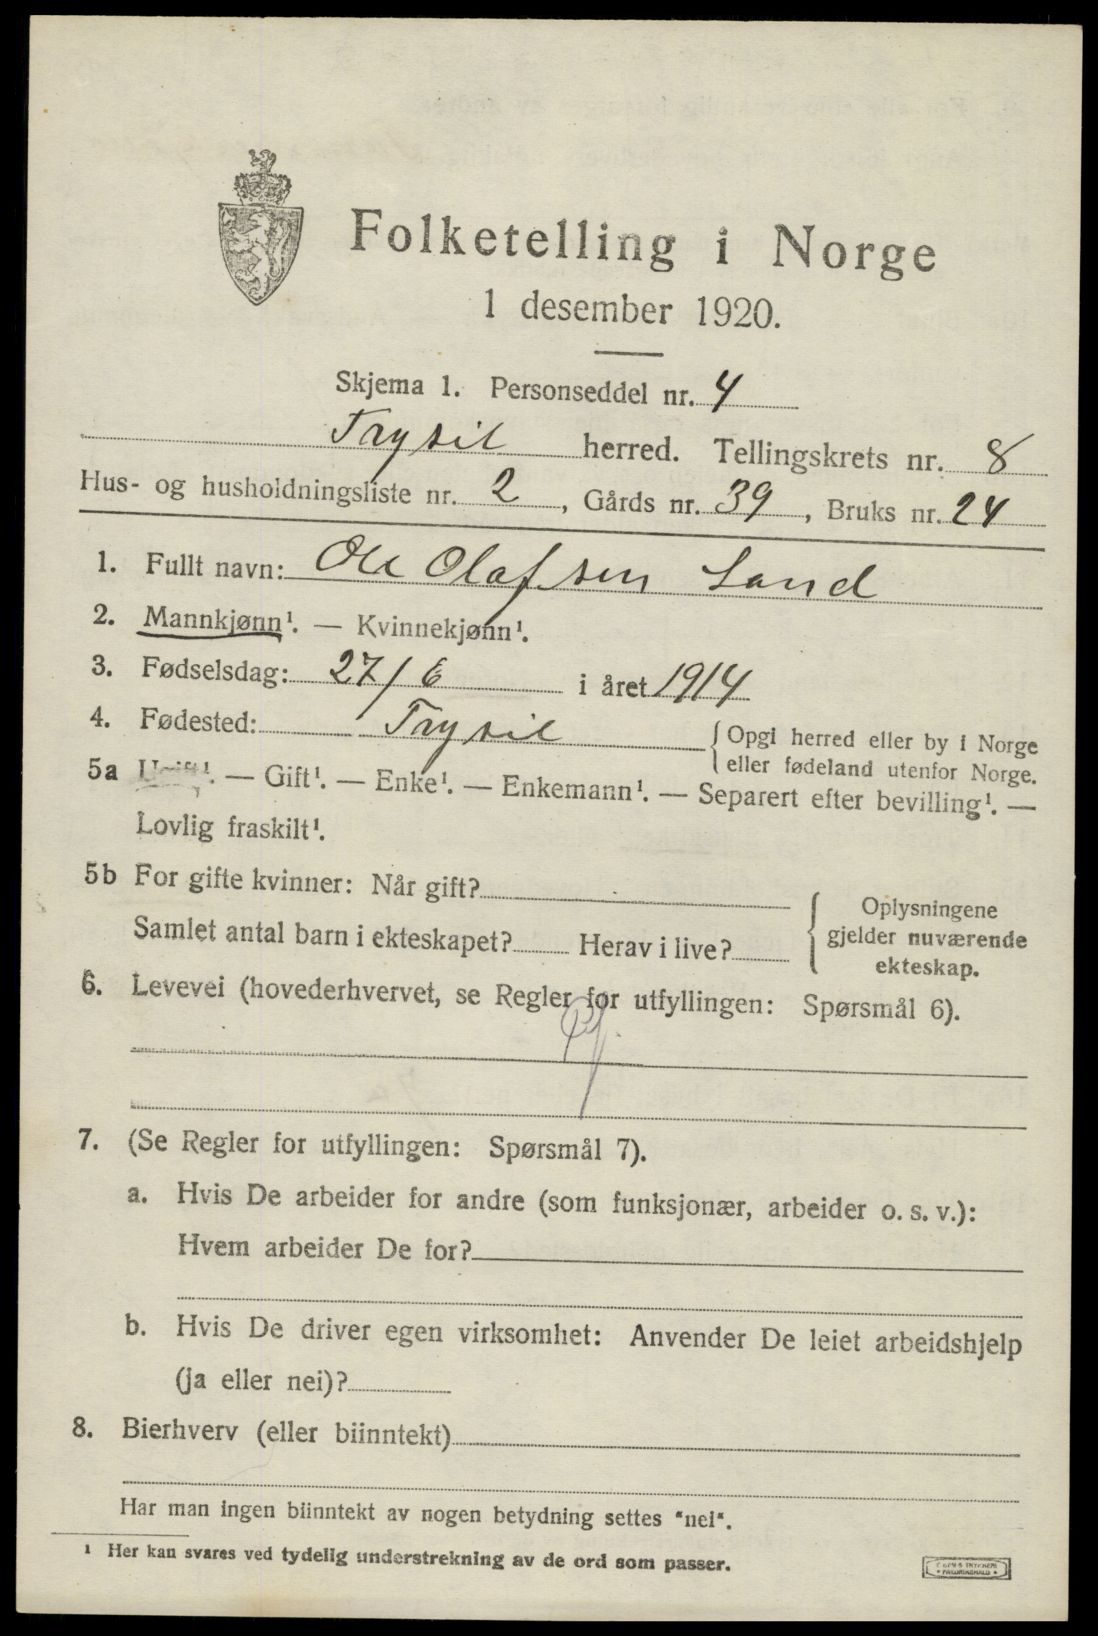 Folketelling i Norge
1 desember 1920.
Skjema 1. Personseddel nr. 4
Trysil herred. Tellingskrets nr. 8
Hus- og husholdningsliste nr. 2, Gårds nr. 39, Bruks nr. 24
1. Fullt navn: Ole Olafsen Sand
2. Mannkjønn¹. — Kvinnekjønn¹.
3. Fødselsdag: 27/6 i året 1914
4. Fødested: Trysil { Opgi herred eller by i Norge
eller fødeland utenfor Norge.
5a Ugift¹. — Gift¹. — Enke¹. — Enkemann¹. — Separert efter bevilling¹. —
Lovlig fraskilt¹.
5b For gifte kvinner: Når gift?
Samlet antal barn i ekteskapet? Herav i live?
{ Oplysningene
gjelder nuværende
ekteskap.
6. Levevei (hovederhvervet, se Regler for utfyllingen: Spørsmål 6).
7. (Se Regler for utfyllingen: Spørsmål 7).
a. Hvis De arbeider for andre (som funksjonær, arbeider o. s. v.):
Hvem arbeider De for?
b. Hvis De driver egen virksomhet: Anvender De leiet arbeidshjelp
(ja eller nei)?
8. Bierhverv (eller biinntekt)
Har man ingen biinntekt av nogen betydning settes "nei".
¹ Her kan svares ved tydelig understrekning av de ord som passer.